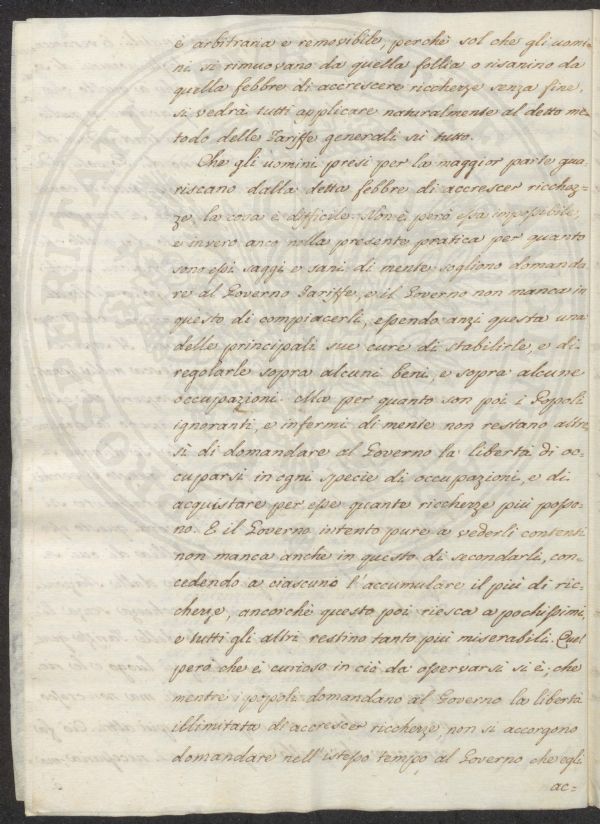 è arbitraria e removibile, perchè sol che gli uomi=
ni si rimuovano da quella follia o risanino da
quella febbre di accrescere ricchezze senza fine,
si vedrà tutti applicare naturalmente al detto me=
todo delle Tariffe generali su tutto.
Che gli uomini presi per la maggior parte gua=
riscano dalla detta febbre di accrescer ricchez=
ze, la cosa è difficile. Non è però essa impossibile,
e invero anco nella presente pratica per quanto
sono essi saggi e sani di mente sogliono domanda
re al Governo Tariffe, e il Governo non manca in
questo di compiacerli, essendo anzi questa una
delle principali sue cure di stabilirle, e di
regolarle sopra alcuni beni, e sopra alcune
occupazioni. Ma per quanto son poi i Popoli
ignoranti, e infermi di mente non restano altre
sì di domandare al Governo la libertà di oc=
cuparsi in ogni specie di occupazioni, e di
acquistare per esse quante ricchezze più posso=
no. E il Governo intento pure a vederli contenti
non manca anche in questo di secondarli, con=
cedendo a ciascuno l'accumulare il più di ric=
chezze, ancorchè questo poi riesca a pochissimi,
e tutti gli altri restino tanto più miserabili. Quel
però che è curioso in ciò da osservarsi si è, che
mentre i popoli domandano al Governo la libertà
illimitata di accrescer ricchezze, non si accorgono
domandare nell'istesso tempo al Governo che egli
ac=
PROSPERITATI